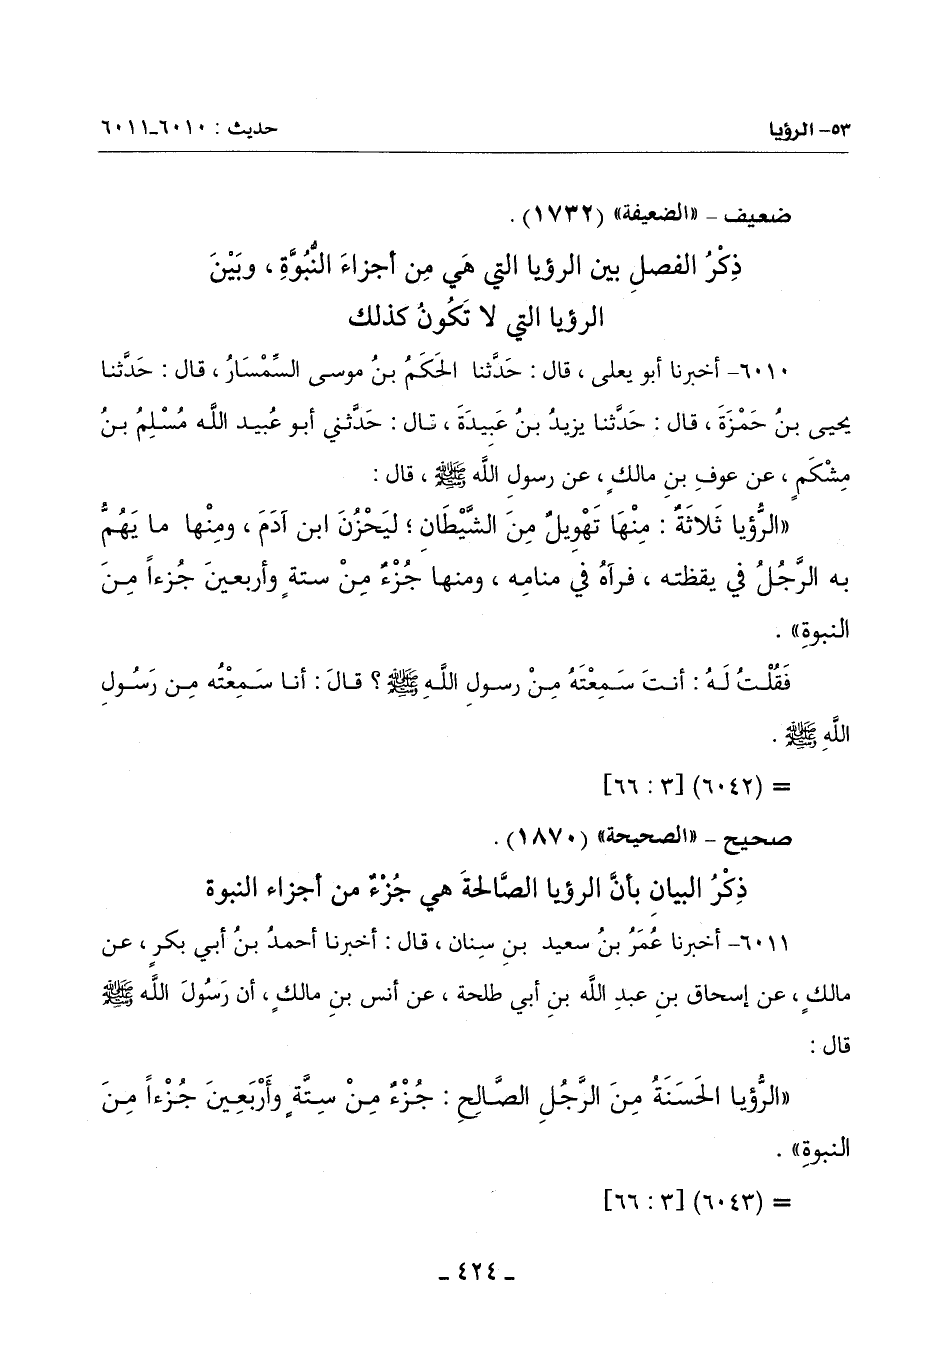 ٥٣- الرؤيا حديث : ٦٠١٠-٦٠١١
ضعيف - «الضعيفة» (١٧٣٢) .
ذِكْرُ الفصلِ بين الرؤيا التي هَي مِن أجزاءَ النُّبُوَّةِ ، وبَيْنَ
الرؤيا التي لا تَكُونُ كذلك
٦٠١٠- أخبرنا أبو يعلى ، قال : حَدَّثنا الحَكَمُ بنُ موسى السِّمْسَارُ ، قال : حَدَّثنا
يحيى بنُ حَمْزَةَ ، قال : حَدَّثنا يزيدُ بنُ عَبِيدَةَ ، قال : حَدَّثني أبو عُبيد اللَّه مُسْلِمُ بنُ
مِشْكَمٍ ، عن عوفِ بنِ مالكٍ ، عن رسولِ اللَّه ﷺ ، قال :
«الرُّؤيا ثَلاثَةٌ : مِنْهَا تَهْوِيلٌ مِنَ الشَّيْطَانِ ؛ ليَحْزُنَ ابن آدَمَ ، ومِنْها ما يَهُمُّ
به الرَّجُلُ في يقظته ، فرآهُ في منامِه ، ومنها جُزْءٌ مِنْ ستةٍ وأربعينَ جُزءاً مِنَ
النبوةِ» .
فَقُلْتُ لَهُ : أنتَ سَمِعْتَهُ مِنْ رسولِ اللَّهِ ﷺ ؟ قالَ : أنا سَمِعْتُه مِن رَسُولِ
اللَّهِ ﷺ .
= (٦٠٤٢) [٣ : ٦٦]
صحيح - «الصحيحة» (١٨٧٠) .
ذِكْرُ البيانِ بأنَّ الرؤيا الصَّالحةَ هي جُزْءٌ من أجزاء النبوة
٦٠١١- أخبرنا عُمَرُ بنُ سعيد بنِ سِنان ، قال : أخبرنا أحمدُ بنُ أبي بكرٍ ، عن
مالكٍ ، عن إسحاق بنِ عبدِ اللَّه بنِ أبي طلحة ، عن أنس بنِ مالكٍ ، أن رَسُولَ اللَّه ﷺ
قال :
«الرُّؤيا الحَسَنَةُ مِنَ الرَّجُلِ الصَّالِحِ : جُزْءٌ مِنْ سِتَّةٍ وأَرْبَعِينَ جُزْءاً مِنَ
النبوةِ» .
= (٦٠٤٣) [٣ : ٦٦]
- ٤٢٤ -